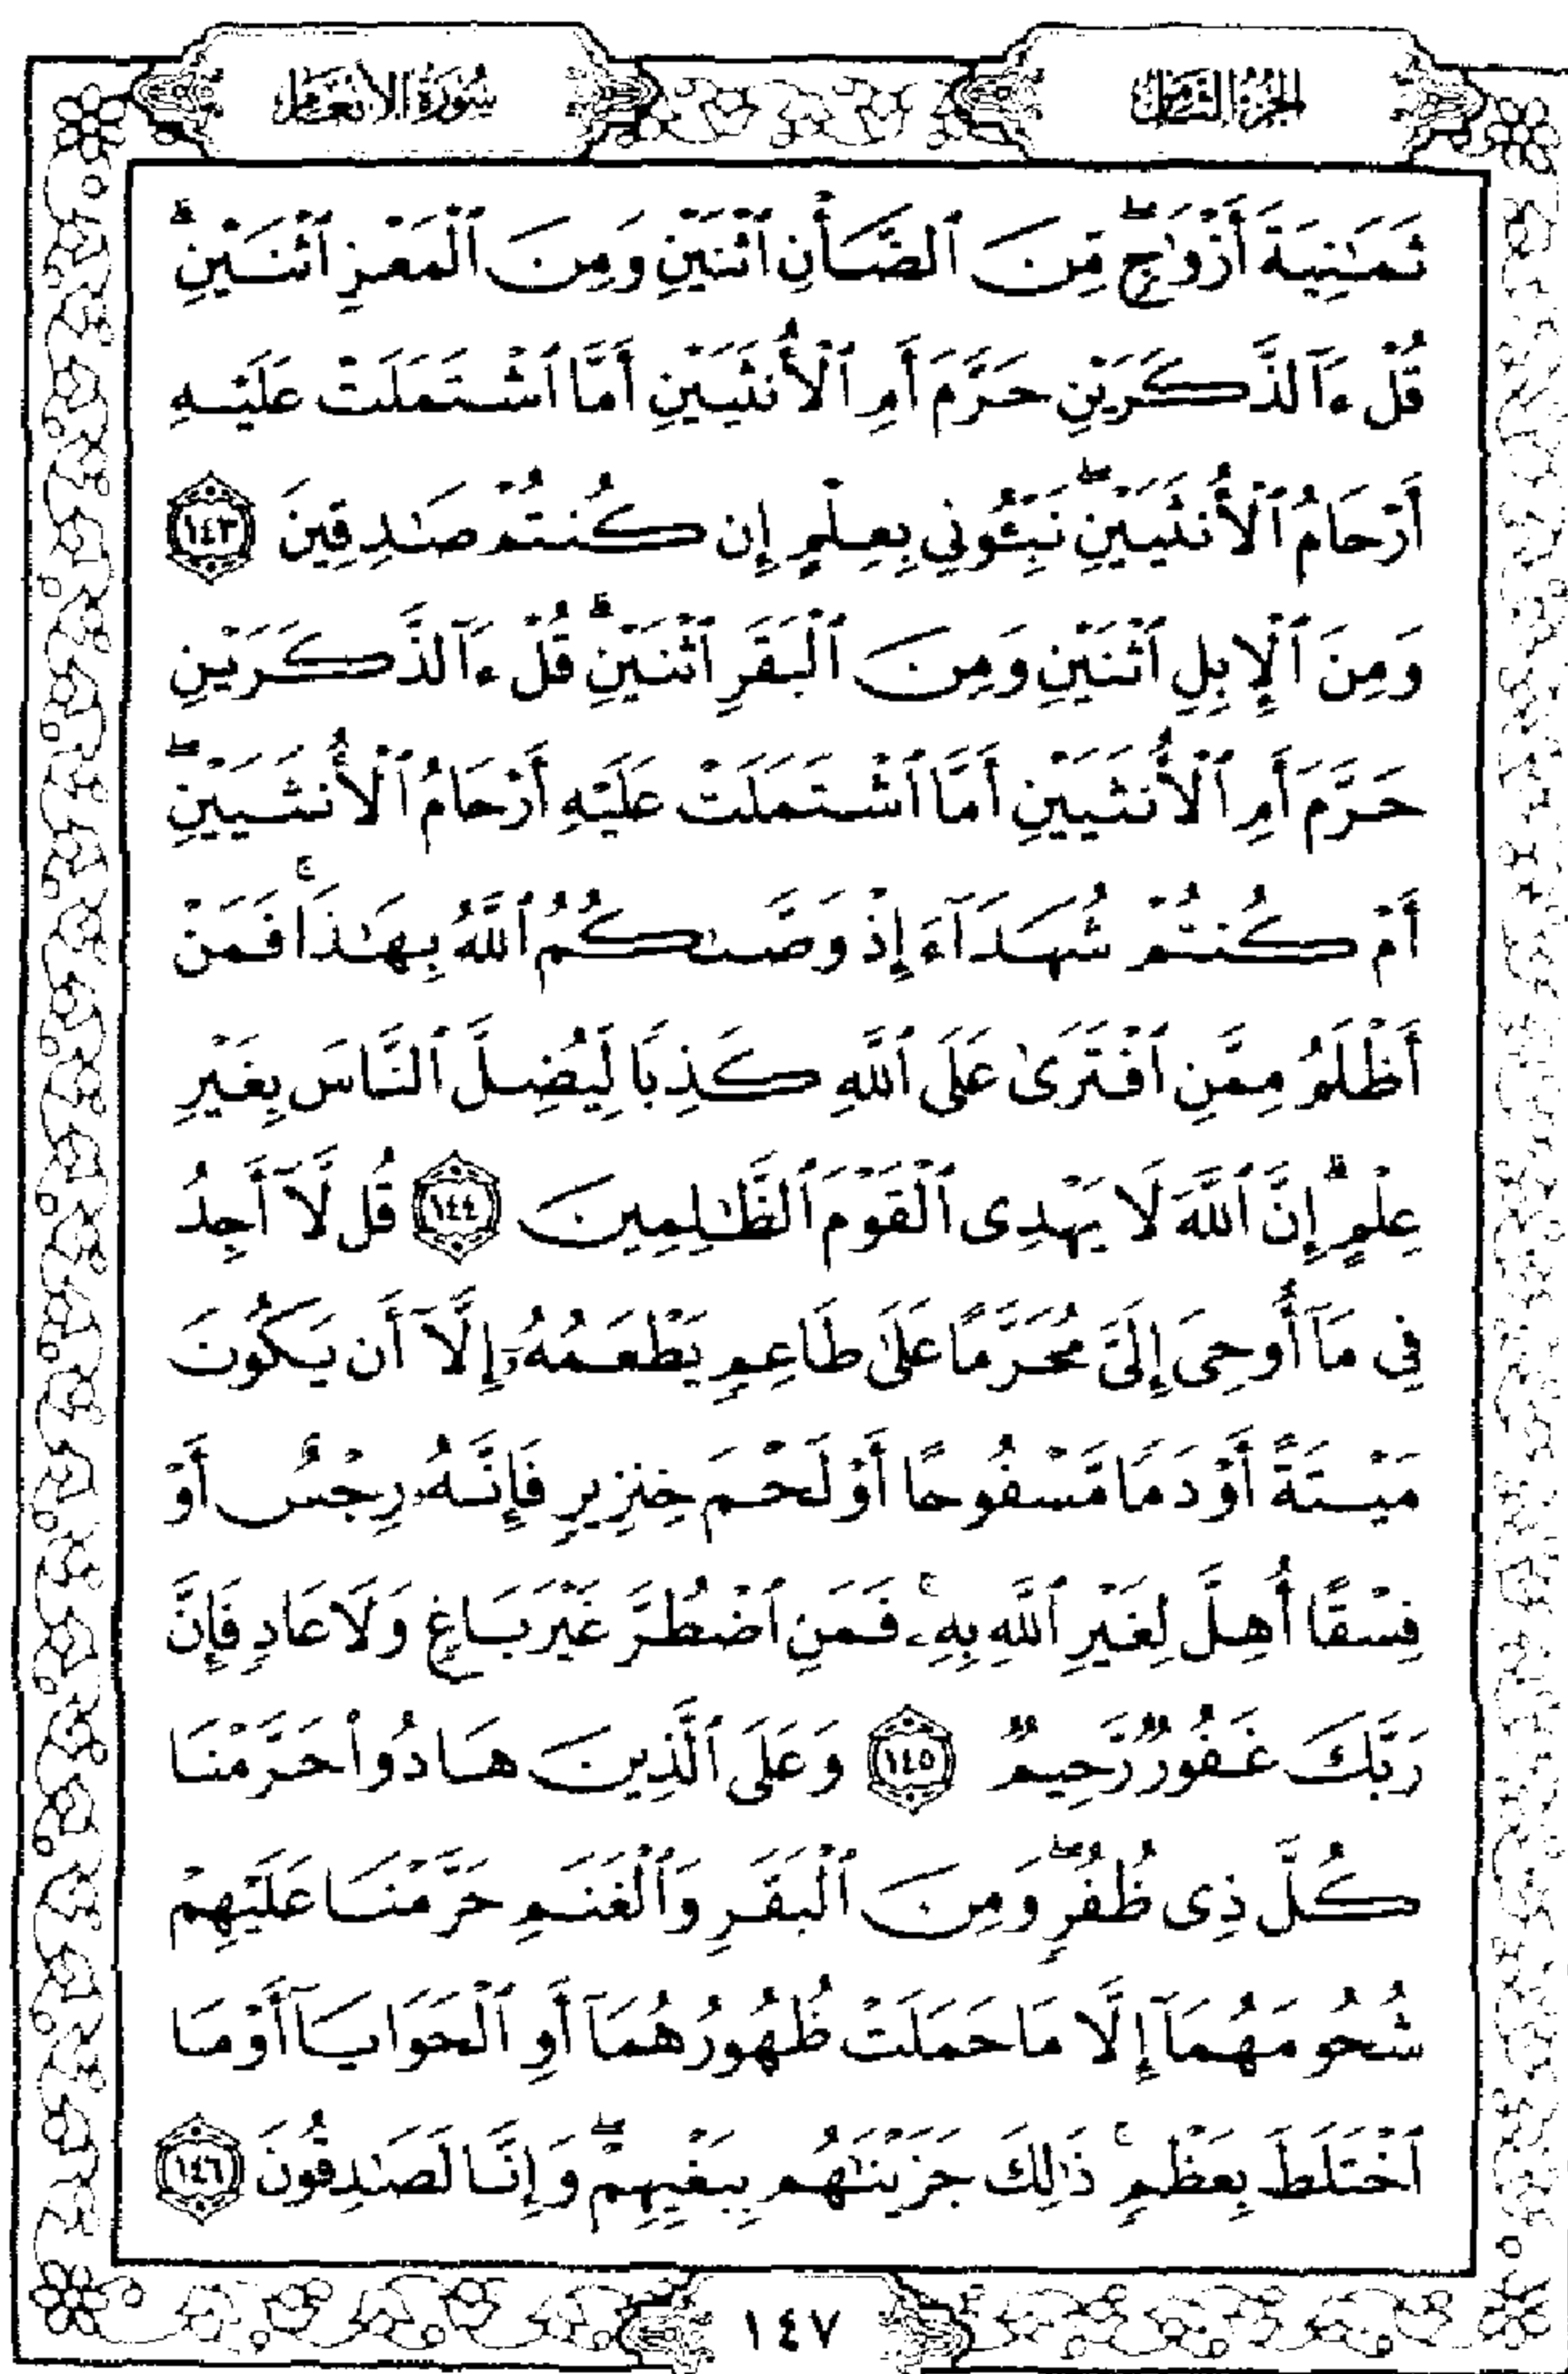 الجزء الثامن
سورة الأنعام
ثَمَٰنِيَةَ أَزْوَٰجٖۖ مِّنَ ٱلضَّأْنِ ٱثْنَيْنِ وَمِنَ ٱلْمَعْزِ ٱثْنَيْنِۗ
قُلْ ءَآلذَّكَرَيْنِ حَرَّمَ أَمِ ٱلْأُنثَيَيْنِ أَمَّا ٱشْتَمَلَتْ عَلَيْهِ
أَرْحَامُ ٱلْأُنثَيَيْنِۖ نَبِّـُٔونِي بِعِلْمٍ إِن كُنتُمْ صَٰدِقِينَ ١٤٣
وَمِنَ ٱلْإِبِلِ ٱثْنَيْنِ وَمِنَ ٱلْبَقَرِ ٱثْنَيْنِۗ قُلْ ءَآلذَّكَرَيْنِ
حَرَّمَ أَمِ ٱلْأُنثَيَيْنِ أَمَّا ٱشْتَمَلَتْ عَلَيْهِ أَرْحَامُ ٱلْأُنثَيَيْنِۖ
أَمْ كُنتُمْ شُهَدَآءَ إِذْ وَصَّىٰكُمُ ٱللَّهُ بِهَٰذَاۚ فَمَنْ
أَظْلَمُ مِمَّنِ ٱفْتَرَىٰ عَلَى ٱللَّهِ كَذِبًا لِّيُضِلَّ ٱلنَّاسَ بِغَيْرِ
عِلْمٍۗ إِنَّ ٱللَّهَ لَا يَهْدِى ٱلْقَوْمَ ٱلظَّٰلِمِينَ ١٤٤ قُل لَّآ أَجِدُ
فِى مَآ أُوحِىَ إِلَىَّ مُحَرَّمًا عَلَىٰ طَاعِمٍ يَطْعَمُهُۥٓ إِلَّآ أَن يَكُونَ
مَيْتَةً أَوْ دَمًا مَّسْفُوحًا أَوْ لَحْمَ خِنزِيرٍ فَإِنَّهُۥ رِجْسٌ أَوْ
فِسْقًا أُهِلَّ لِغَيْرِ ٱللَّهِ بِهِۦۚ فَمَنِ ٱضْطُرَّ غَيْرَ بَاغٍ وَلَا عَادٍ فَإِنَّ
رَبَّكَ غَفُورٌ رَّحِيمٌ ١٤٥ وَعَلَى ٱلَّذِينَ هَادُوا۟ حَرَّمْنَا
كُلَّ ذِى ظُفُرٍۖ وَمِنَ ٱلْبَقَرِ وَٱلْغَنَمِ حَرَّمْنَا عَلَيْهِمْ
شُحُومَهُمَآ إِلَّا مَا حَمَلَتْ ظُهُورُهُمَآ أَوِ ٱلْحَوَايَآ أَوْ مَا
ٱخْتَلَطَ بِعَظْمٍۚ ذَٰلِكَ جَزَيْنَٰهُم بِبَغْيِهِمْۖ وَإِنَّا لَصَٰدِقُونَ ١٤٦
١٤٧